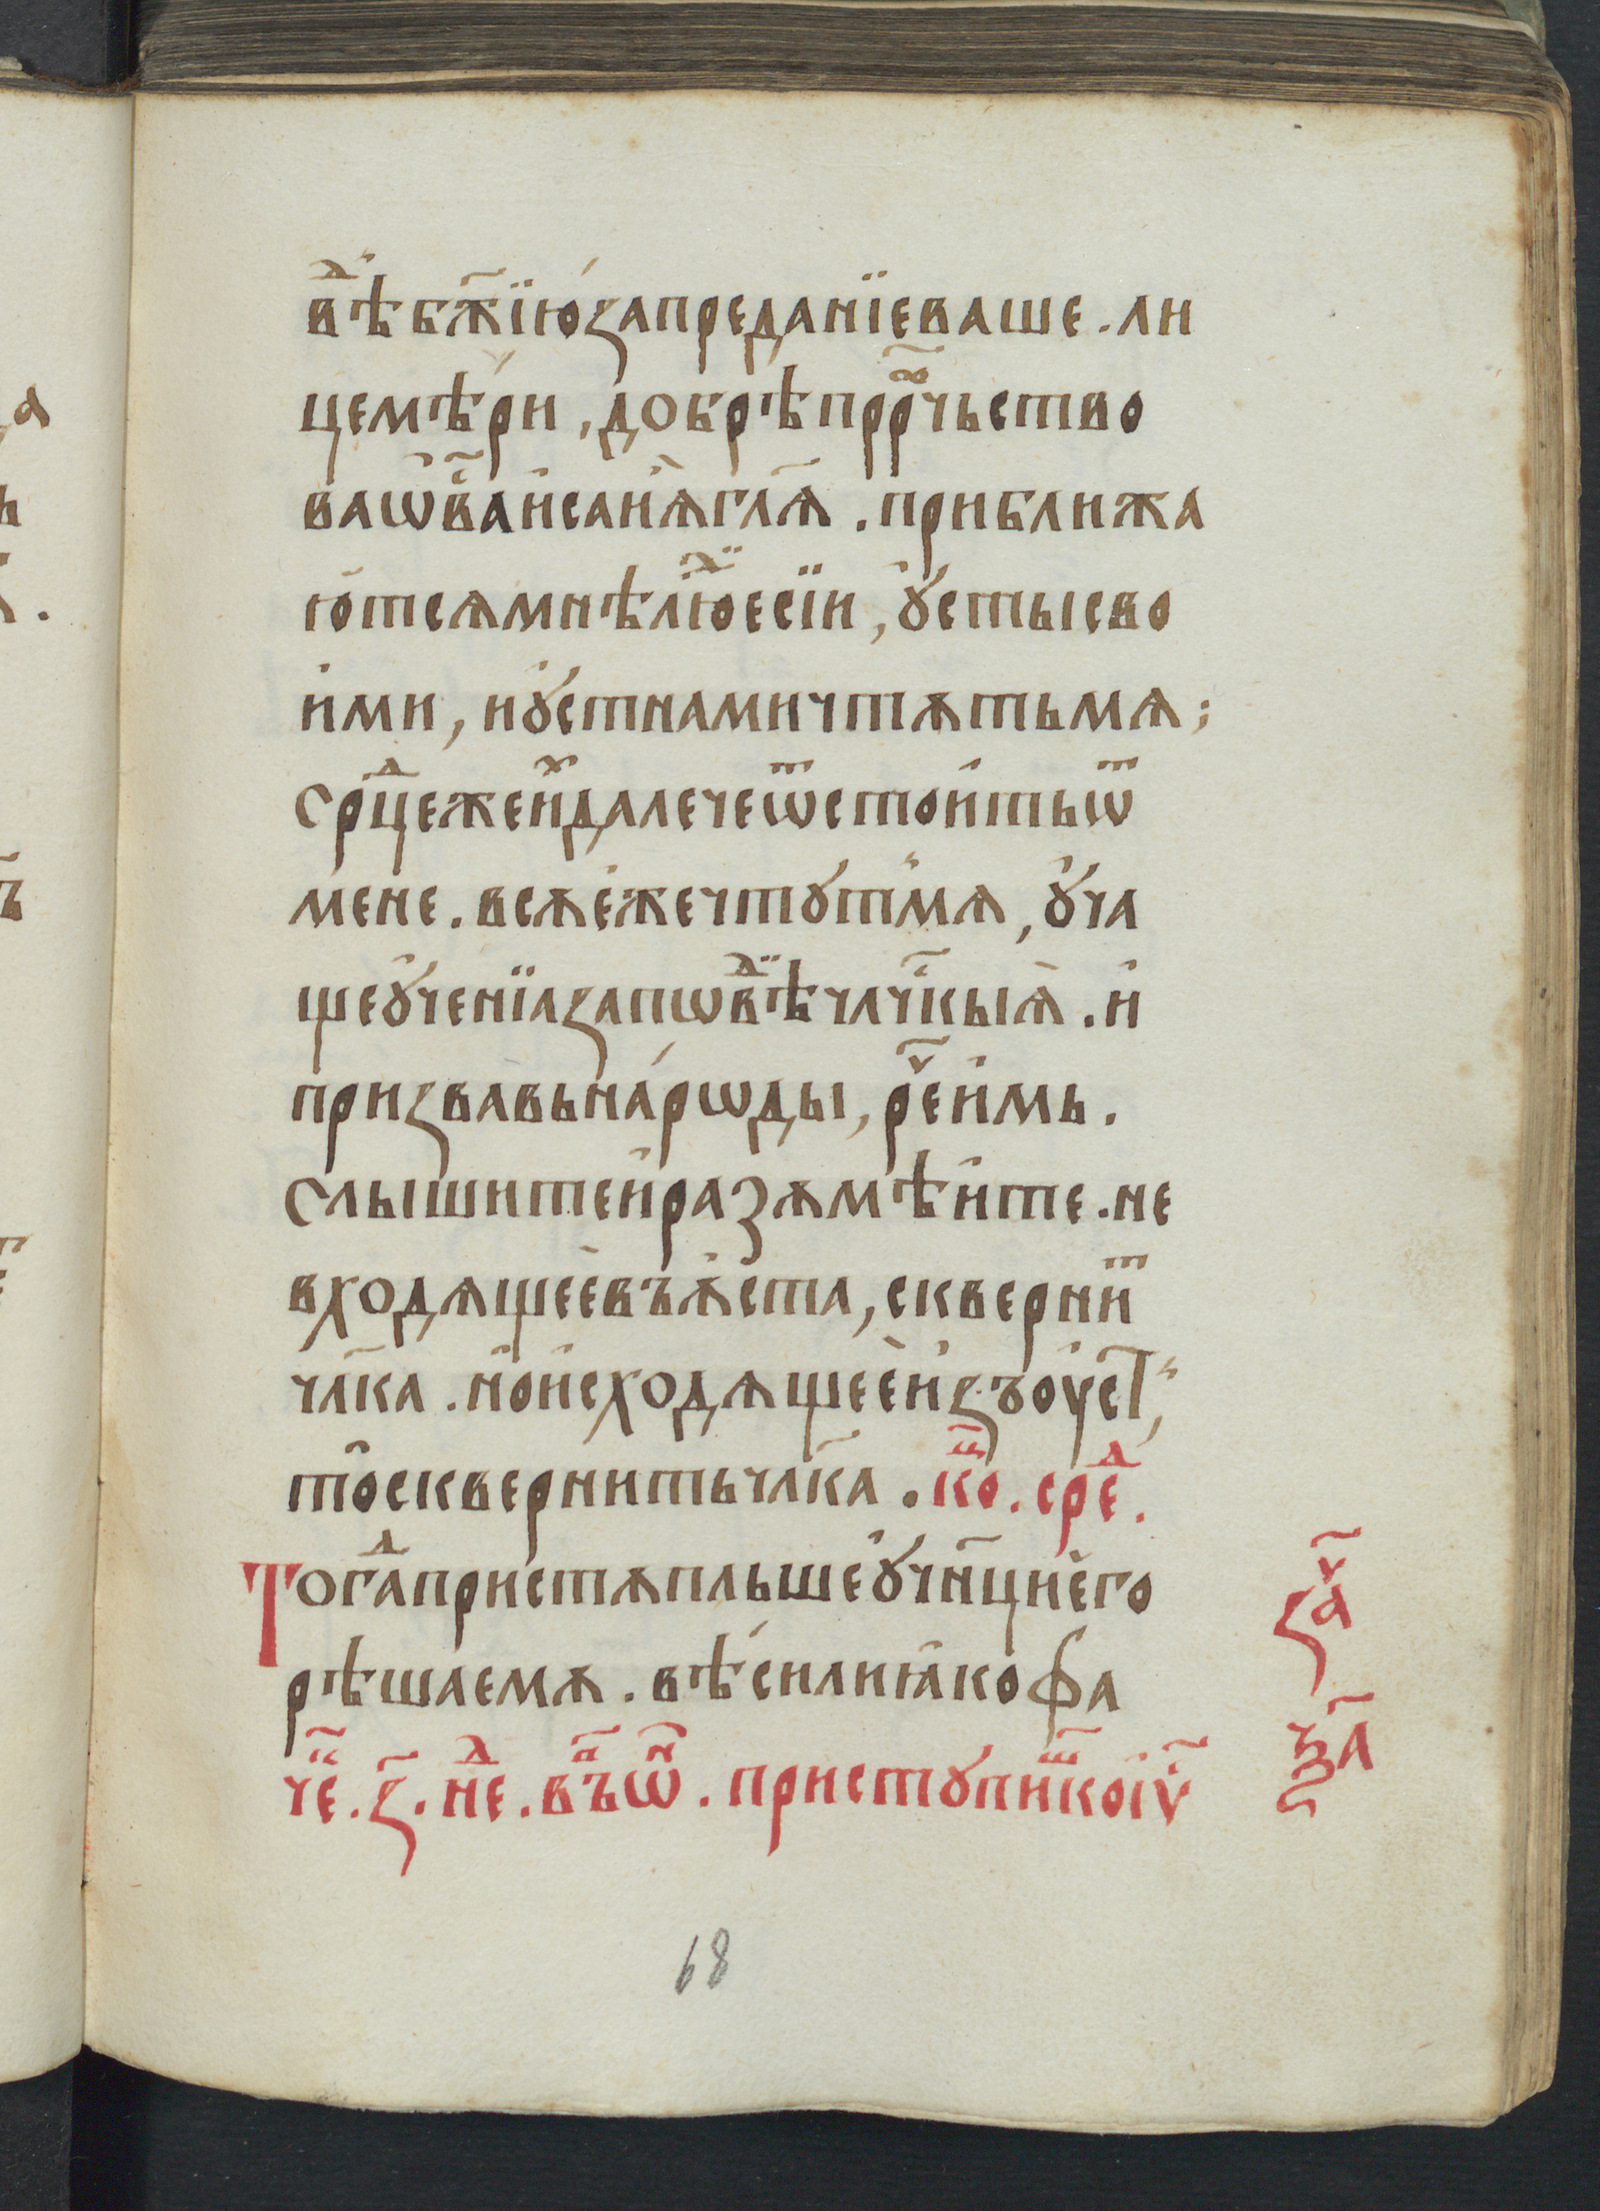 вⷣѣ бж҃їю́ ꙁа преданїе ваше . ли
цемѣ́ри , добрѣ прⷪ҇рчьство
ва ѡ҆ ва́с и҆саи҆ꙗ гл҃ѧ . приближа
ю҆тсѧ мнѣ лю́дїе сїи , ꙋ҆сты сво
и҆ми , и ꙋ҆стнами чтѫть мѧ ;
срⷣце же и҆ⷯ далече ѿстои҆ть ѿ
мене . всѫе҆ же чтꙋт мѧ , ꙋ҆ча
ще ꙋ҆ченїа ꙁапѡвⷣѣ члчⷭ҇кыꙗ . и҆
приꙁвавь на́рѡды , реⷱ҇ и҆мь .
Слышите и҆ раꙁѫмѣи҆те . не
входѧщее въ ѫ҆ста , скверниⷮ
чл҃ка . но҆ и҆сходѧщее и҆ꙁъ оу҆ст ,
то҆ сквернить чл҃ка . коⷰ҇ . среⷣ .
Тогⷣа пристѫпльше ꙋ҆чн҃ци е҆го
рѣша емѫ . вѣ́си ли ꙗ҆ко фа
чеⷭ҇ . ꙁ҃ . неⷣ . въⷫ҇ ѡⷩ҇ . пристꙋпиш҃ ко і҆ѵ҃
ꙁаⷱ҇
ѯ҃а
68